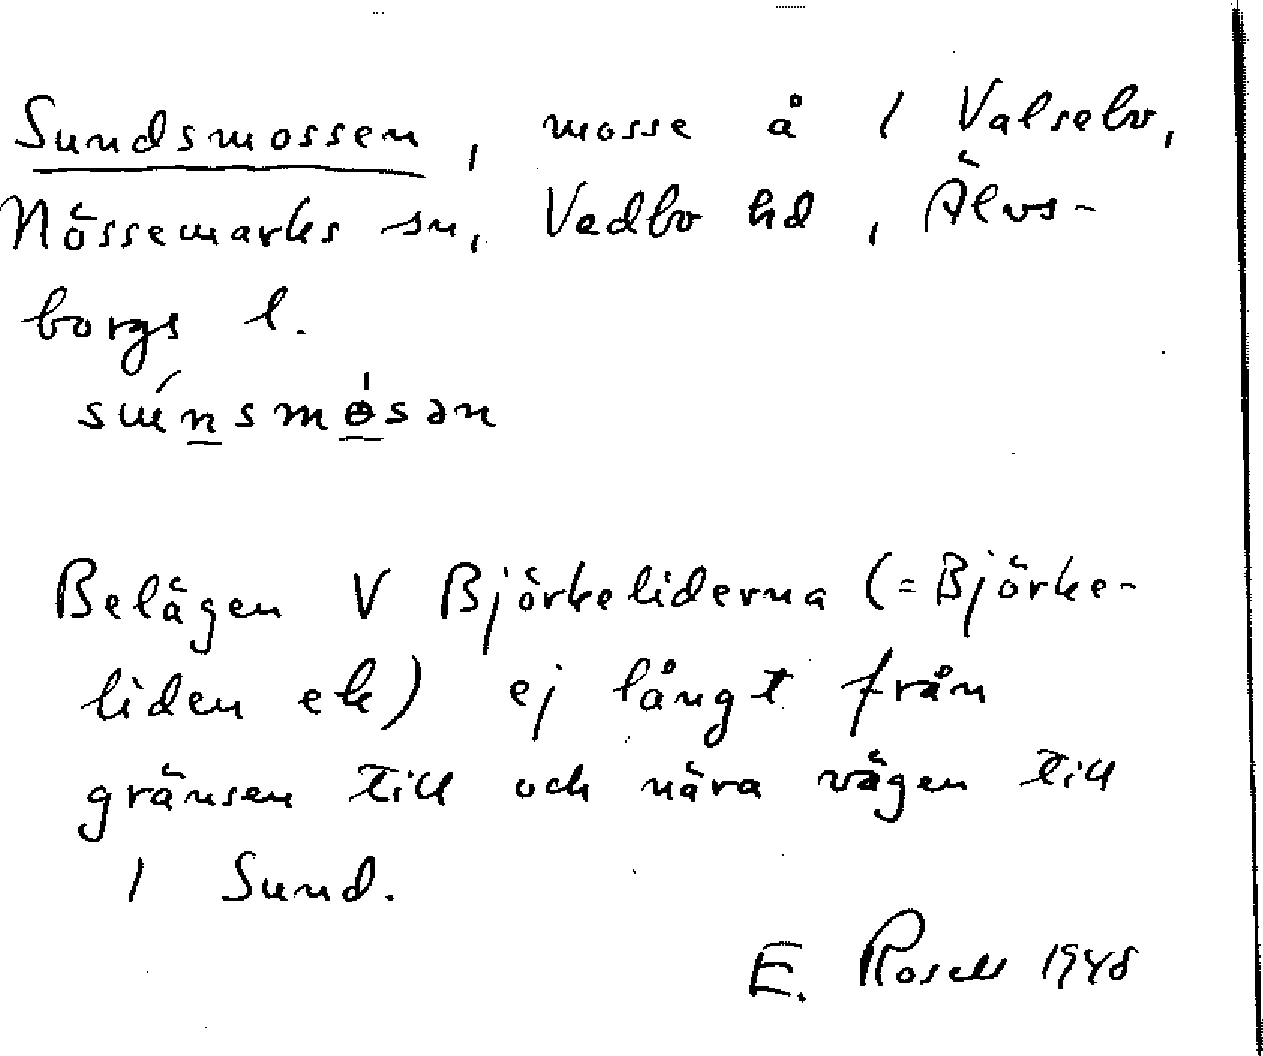 Sundsmossen, mosse å 1 Valsebo,
Nössemarks sn, Vedbo hd, Älvs-
borgs l.
Belägen V Björkeliderna (= Björke-
liden ek) ej långt från
gränsen till och nära vägen till
1 Sund.
E. Rosell 1948